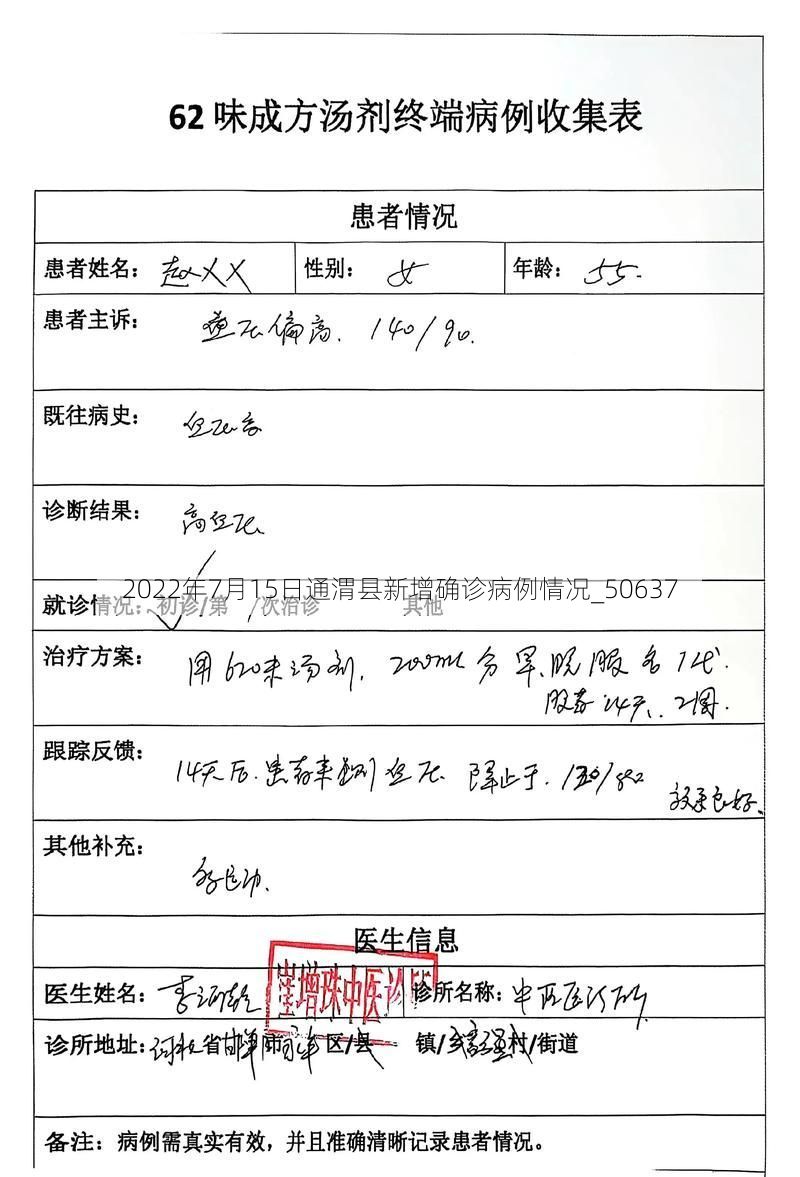 62味成方汤剂终端病例收集表
患者情况
患者姓名：赵XX 性别：女 年龄：55.
患者主诉：血压偏高. 140/90.
既往病史：血压高
诊断结果：高血压
2022年7月15日通渭县新增确诊病例情况_50637
就诊情况：初诊/第 /次治诊 其他
治疗方案：用620味汤剂, 200ml 分早、晚服各1代.
服药14天、2周.
跟踪反馈：14天后.患者来测血压 降止于.130/80
效果良好、
其他补充：
医生信息
崔增珠中医诊所
医生姓名：李 诊所名称：中医诊所
诊所地址：河北省邯郸市 区/县 镇/乡 村/街道
备注：病例需真实有效，并且准确清晰记录患者情况。